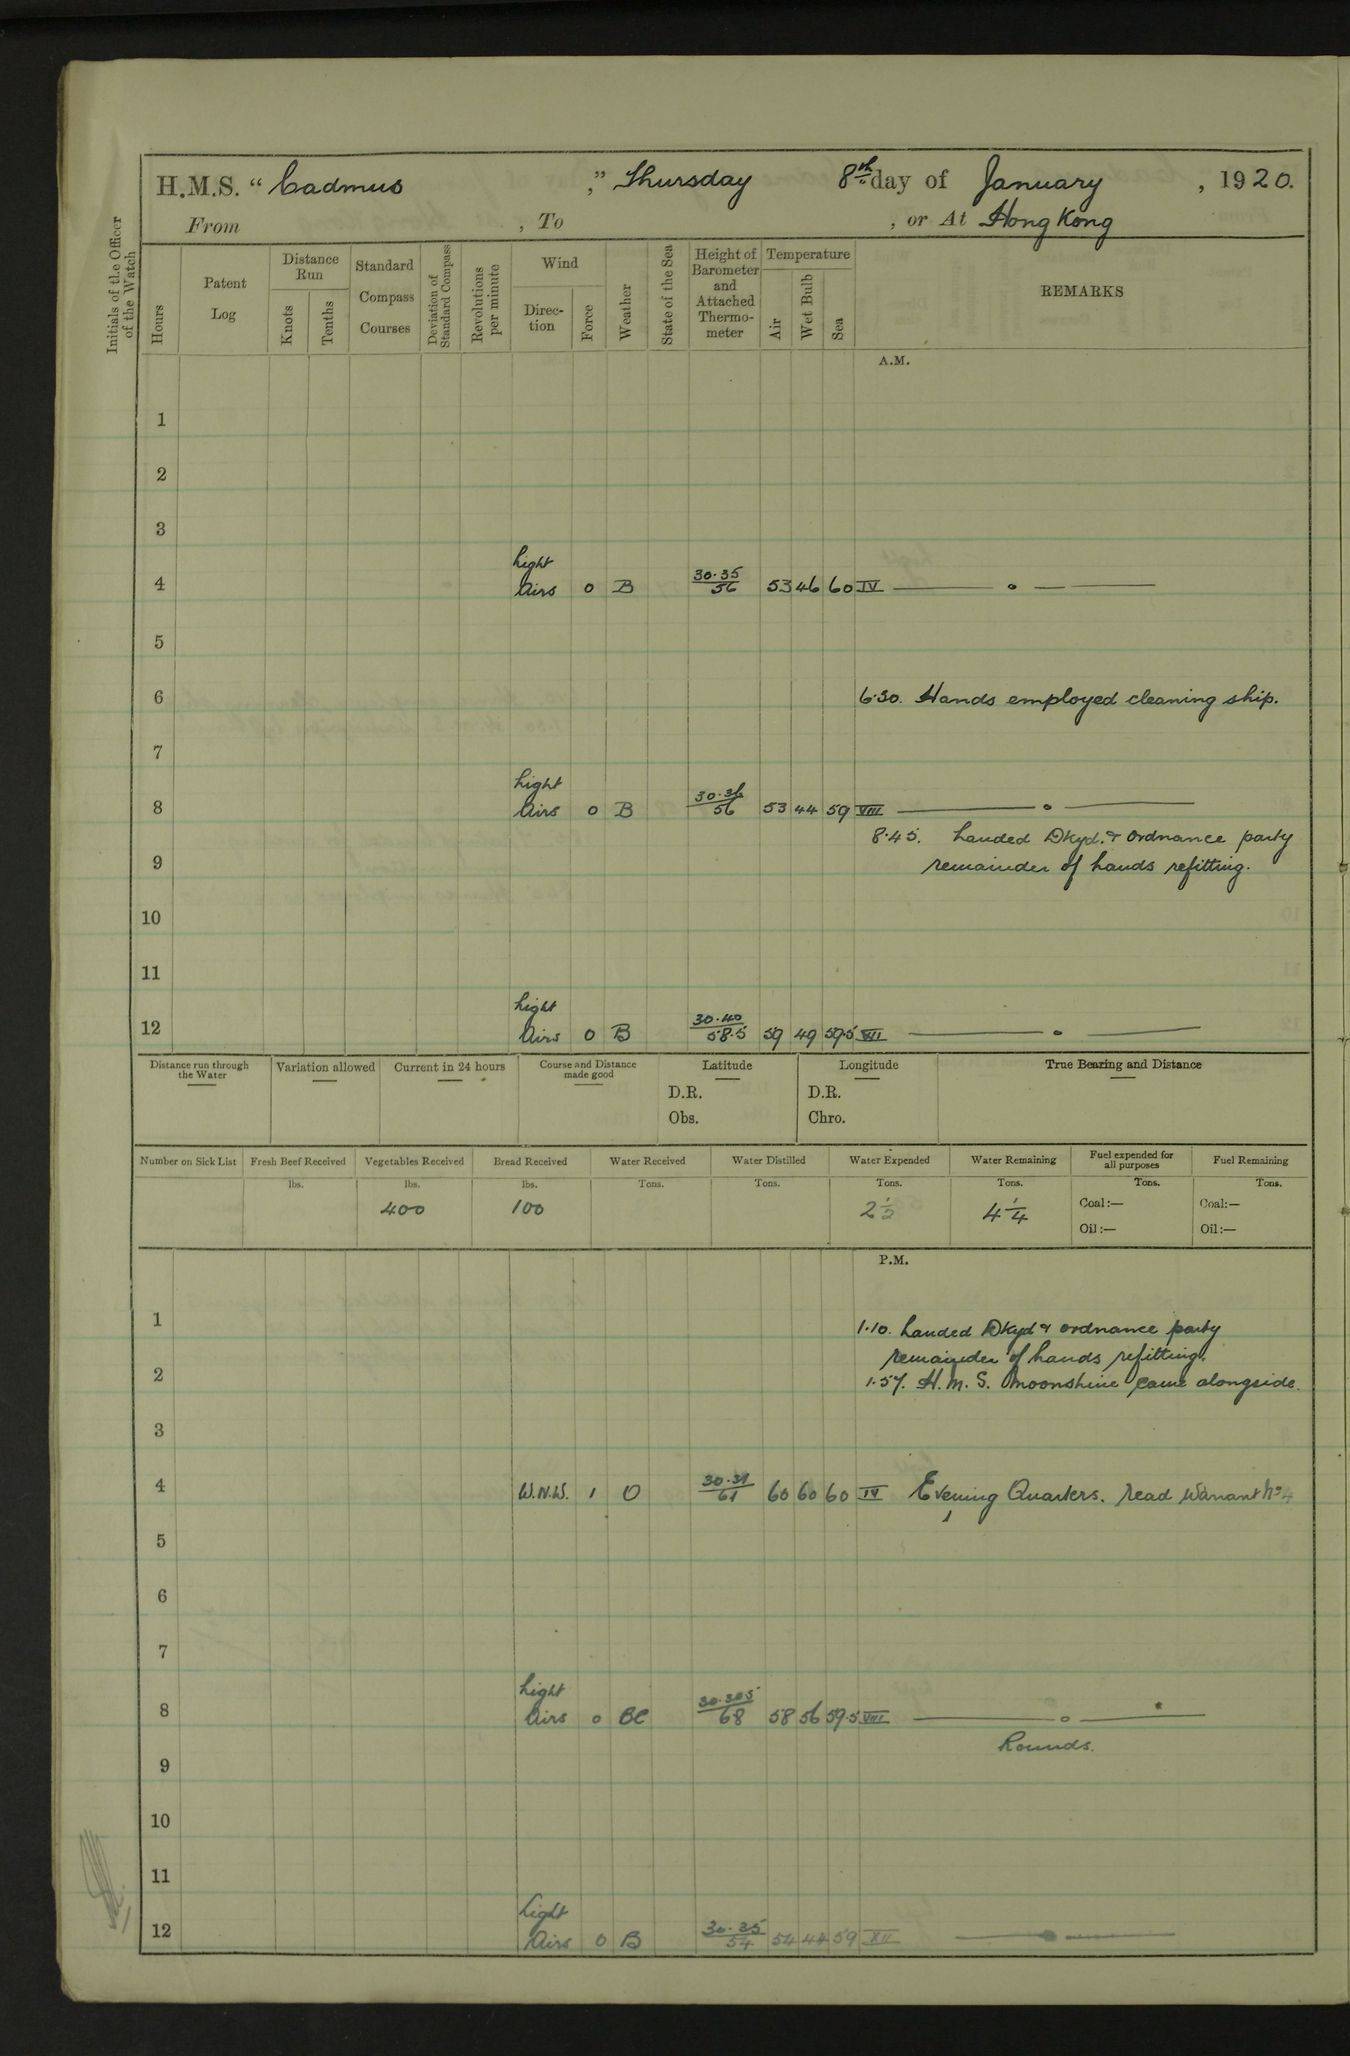 H.M.S. " Cadmus ," Thursday 8th day of January , 1920.
From , To , or At Hong Kong
Initials of the Officer of the Watch
Hours
Patent Log
Distance Run
Knots
Tenths
Standard Compass Courses
Deviation of Standard Compass
Revolutions per minute
Wind
Direc-tion
Force
Weather
State of the Sea
Height of Barometer and Attached Thermo-meter
Temperature
Air
Wet Bulb
Sea
REMARKS
A.M.
1
2
3
4 Light Airs 0 B 30.35 56 53 46 60 IV
5
6 6.30. Hands employed cleaning ship.
7
8 Light Airs 0 B 30.36 56 53 44 59 VIII
8.45. Landed Dkyd. & Ordnance party
9 remainder of hands refitting.
10
11
12 Light Airs 0 B 30.40 58.5 59 49 59.5 XII
Distance run through the Water
Variation allowed
Current in 24 hours
Course and Distance made good
Latitude
D.R.
Obs.
Longitude
D.R.
Chro.
True Bearing and Distance
Number on Sick List
Fresh Beef Received lbs.
Vegetables Received lbs. 400
Bread Received lbs. 100
Water Received Tons.
Water Distilled Tons.
Water Expended Tons. 2 1/2
Water Remaining Tons. 4 1/4
Fuel expended for all purposes Tons.
Coal:—
Oil:—
Fuel Remaining Tons.
Coal:—
Oil:—
P.M.
1 1.10. Landed Dkyd & ordnance party
remainder of hands refitting.
2 1.57. H.M.S. Moonshine came alongside.
3
4 W.N.W. 1 O 30.31 61 60 60 60 IV Evening Quarters. read Warrant No 4
5
6
7
8 Light Airs 0 BC 30.305 68 58 56 59.5 VIII
Rounds.
9
10
11
12 Light Airs 0 B 30.35 54 54 44 59 XII